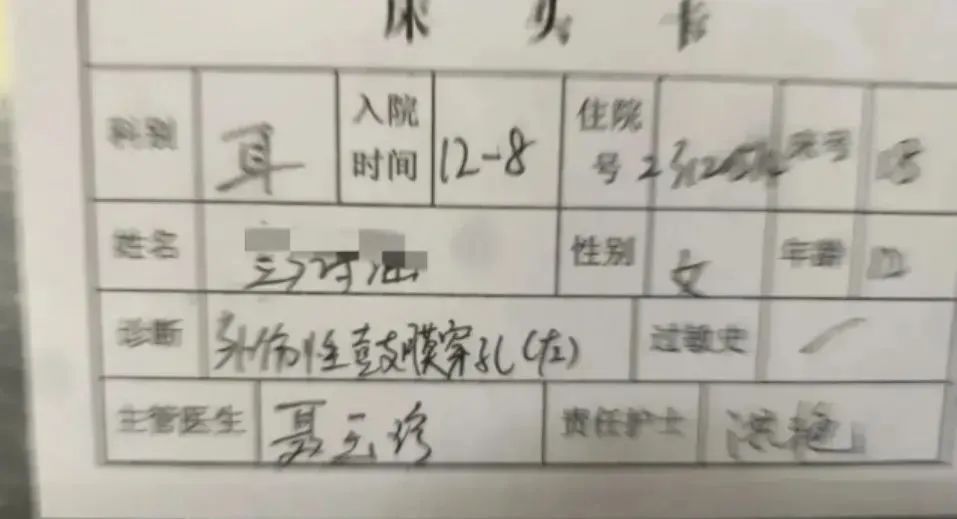 床头卡
科别 耳 入院时间 12-8 住院号 床号
姓名 性别 女 年龄 12
诊断 外伤性鼓膜穿孔(左) 过敏史 /
主管医生 聂云珍 责任护士 洪艳